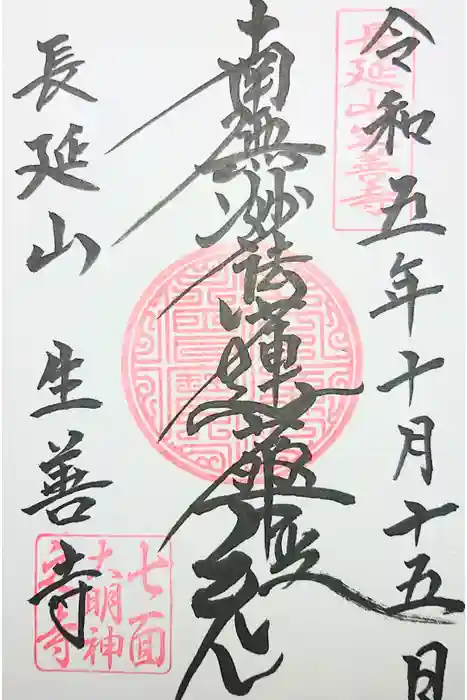 令和五年十月十五日
長延山生善寺
南無妙法蓮華経
長延山 生善寺
七面
大明神
生善寺